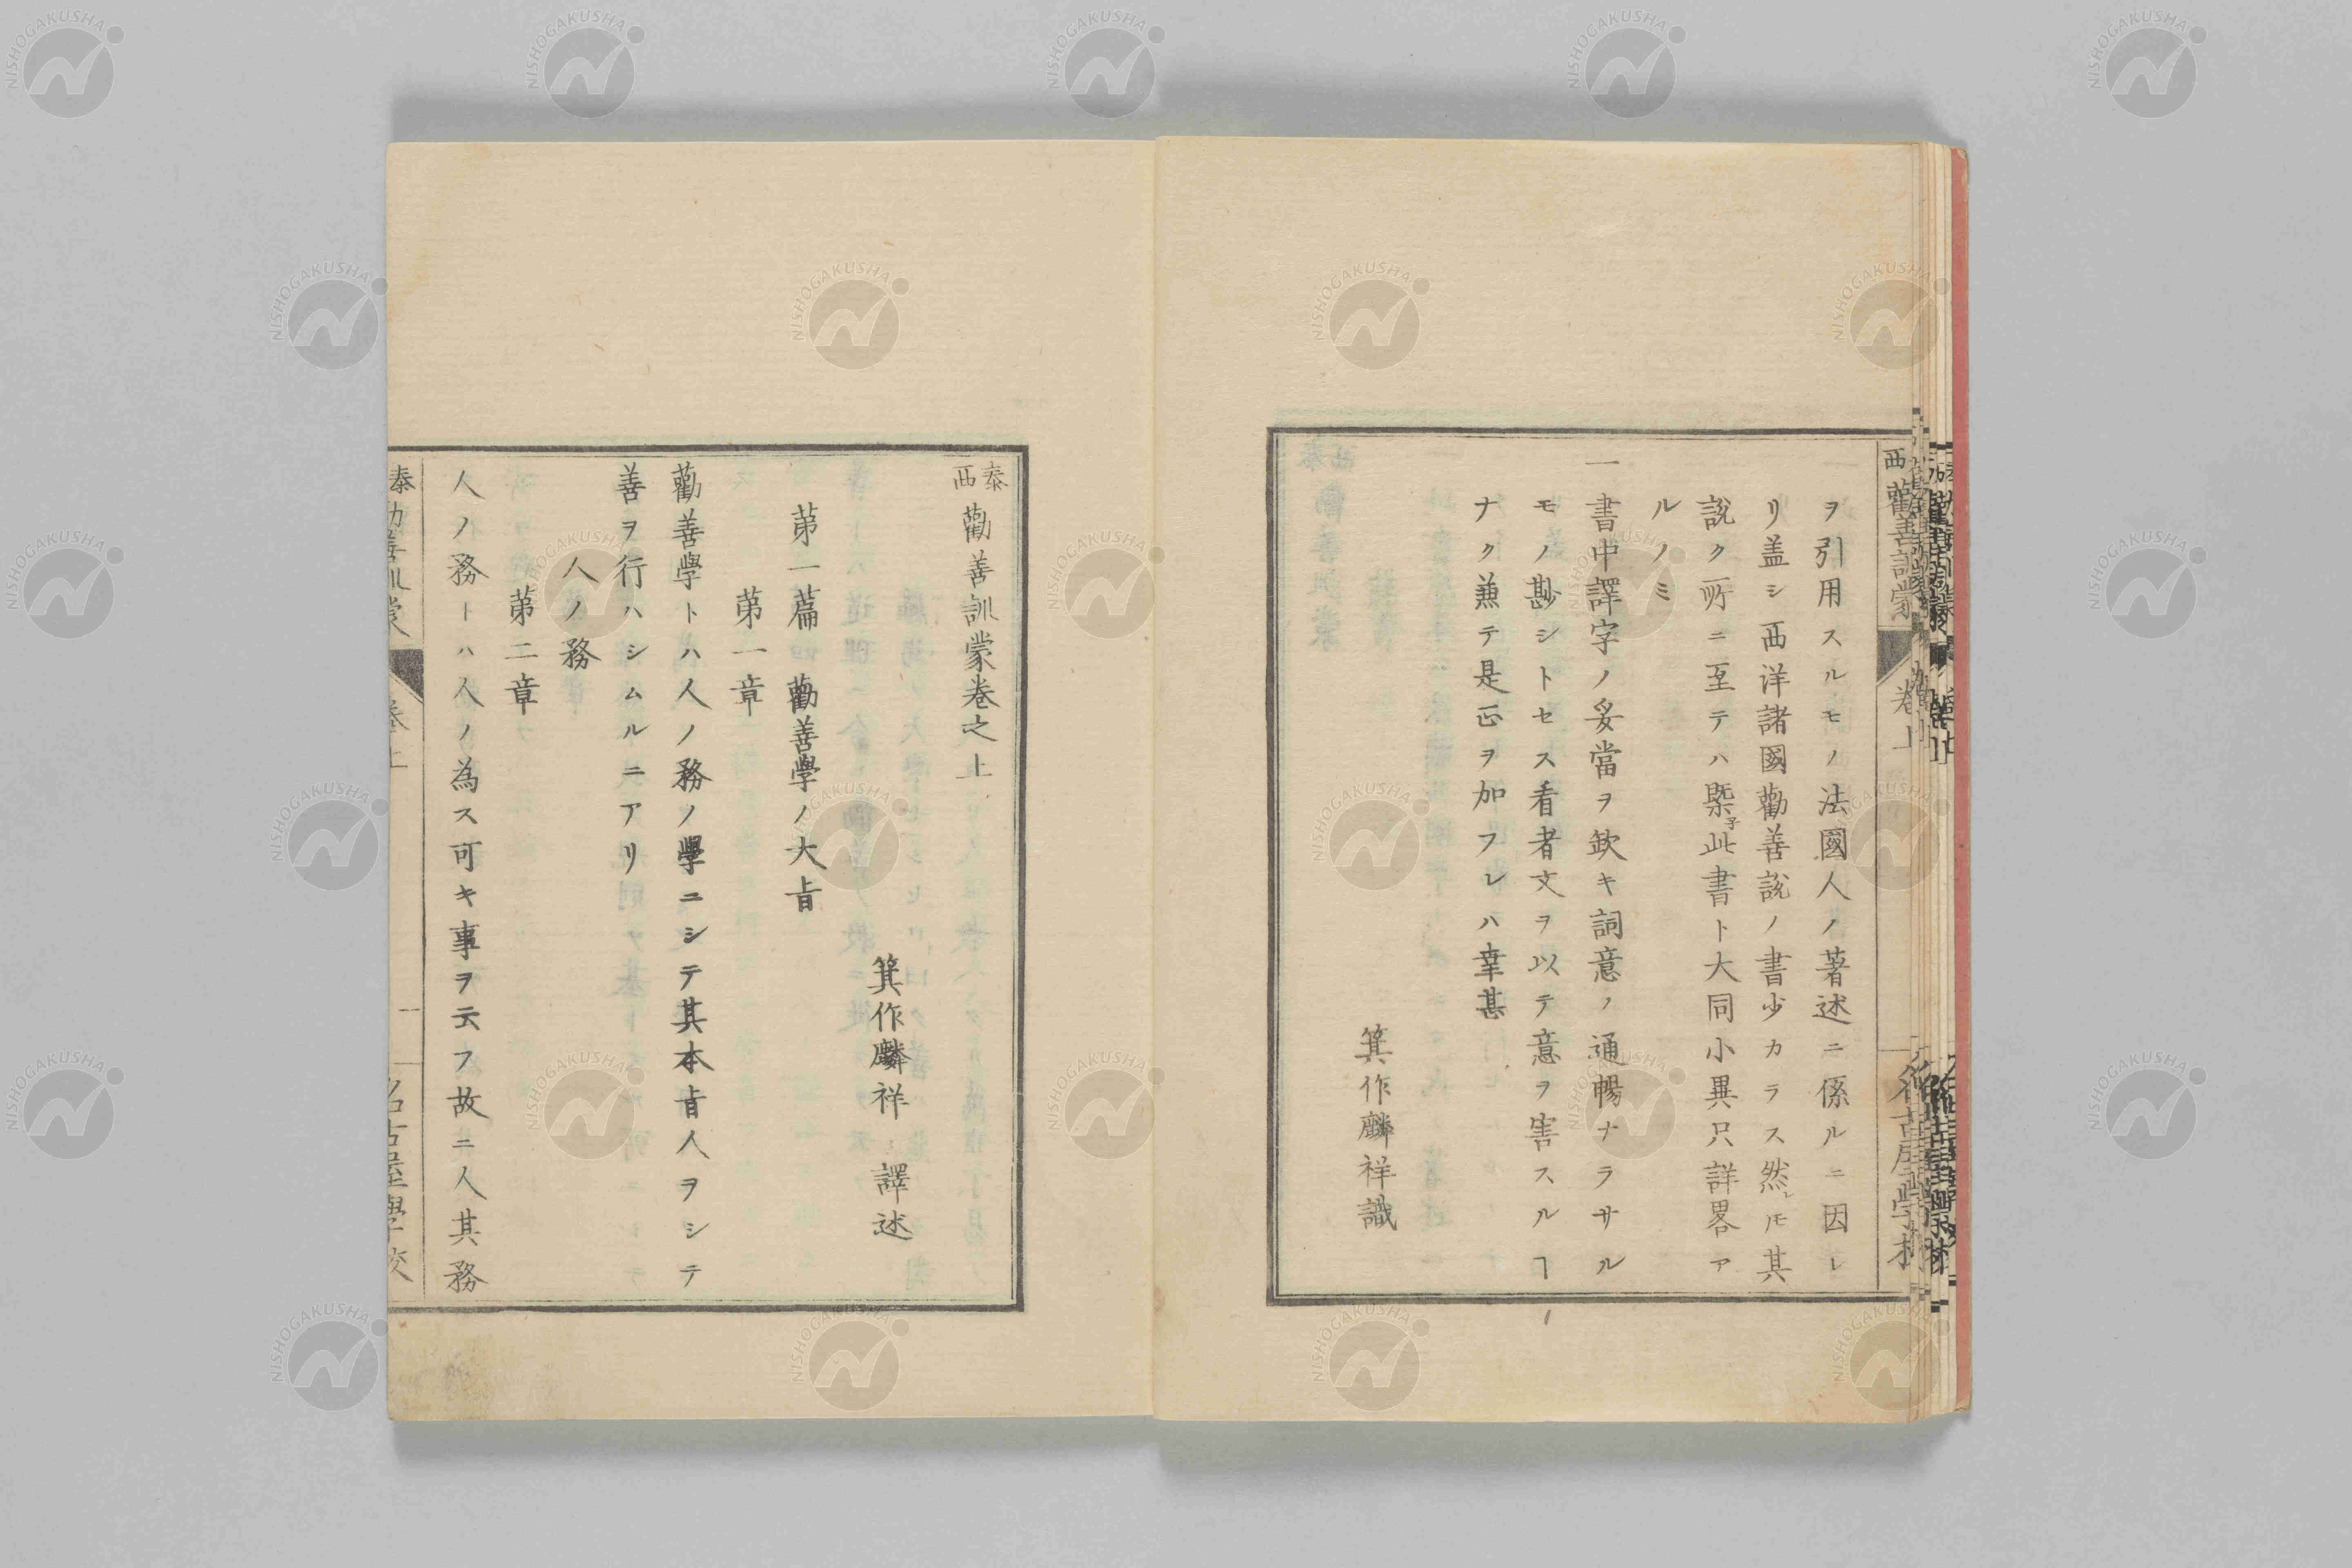 ヲ引用スルモノ法國人ノ著述ニ係ルニ因レ
リ盖シ西洋諸國勸善說ノ書少カラス然レ𪜈其
說ク所ニ至テハ槩子此書ト大同小異只詳畧ア
ルノミ
一書中譯字ノ妥當ヲ欽キ詞意ノ通暢ナラサル
モノ尠シトセス看者文ヲ以テ意ヲ害スルヿ
ナク兼テ是正ヲ加フレハ幸甚
箕作麟祥識
泰西勸善訓蒙卷之上
箕作麟祥 譯述
第一篇 勸善學ノ大旨
第一章
勸善學トハ人ノ務ノ學ニシテ其本旨人ヲシテ
善ヲ行ハシムルニアリ
人ノ務
第二章
人ノ務トハ人ノ為ス可キ事ヲ云フ故ニ人其務
NISHOGAKUSHA